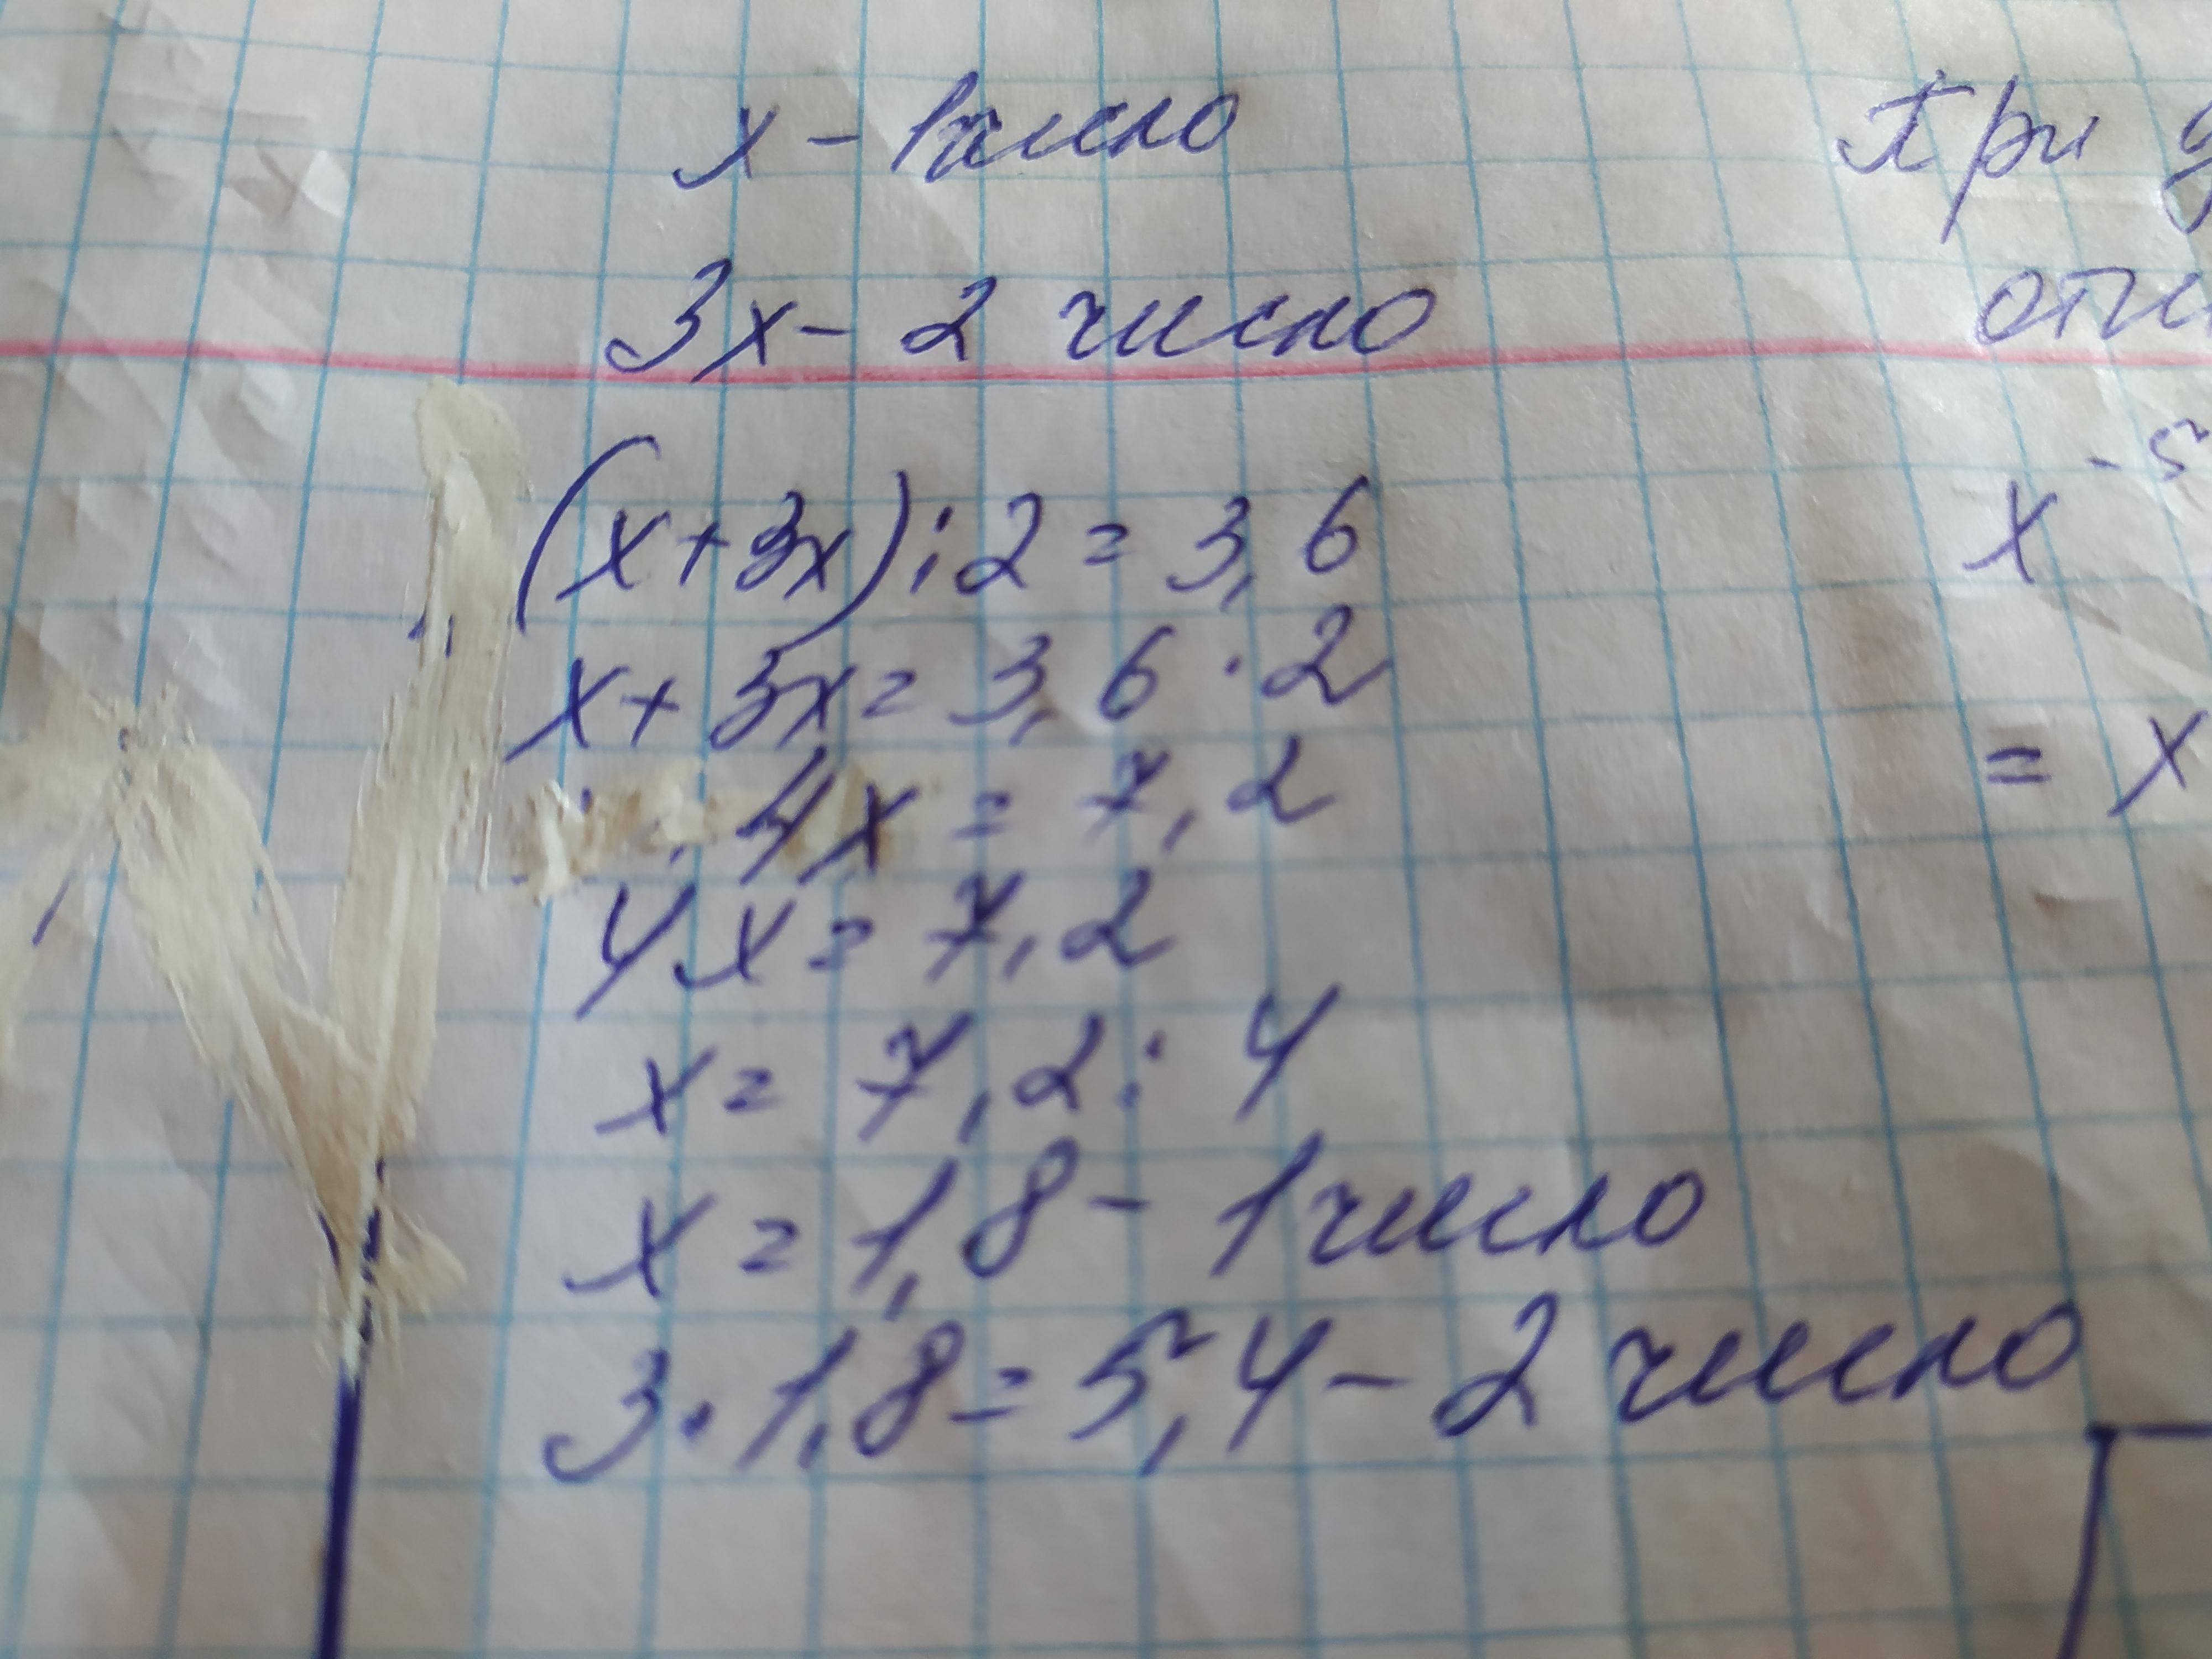 x - 1 число
3x - 2 число
(x+3x):2=3,6
x+3x=3,6·2
4x=7,2
4x=7,2
x=7,2:4
x=1,8 - 1 число
3·1,8=5,4 - 2 число
При
x⁻⁵
= x